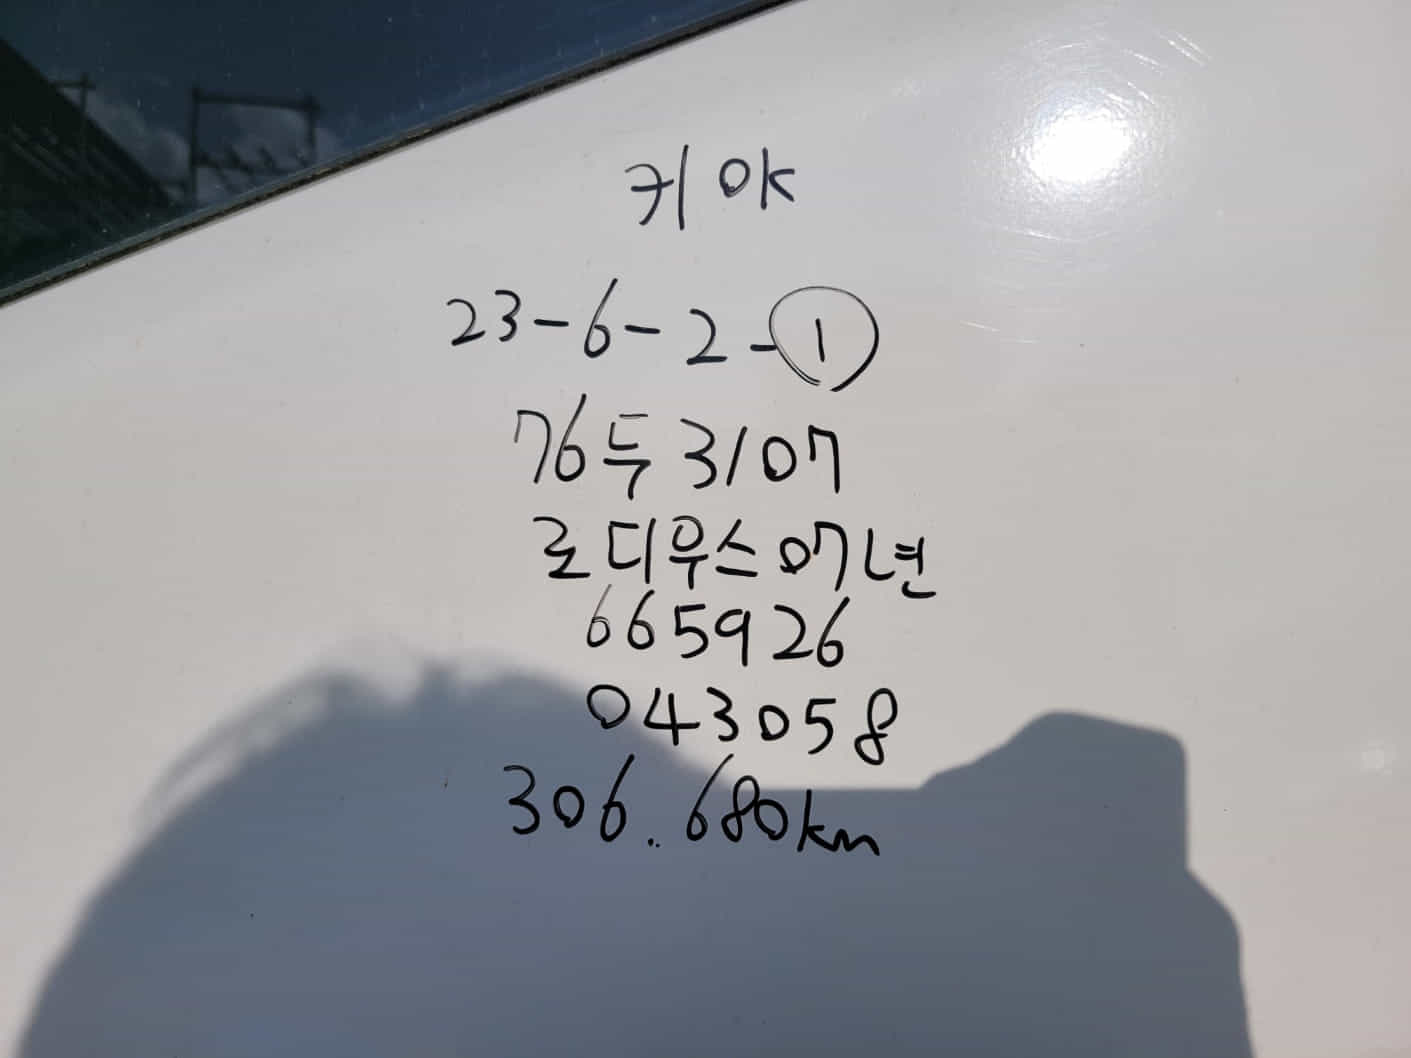 키 OK
23-6-2-①
76두3107
로디우스07년
665926
043058
306.680km